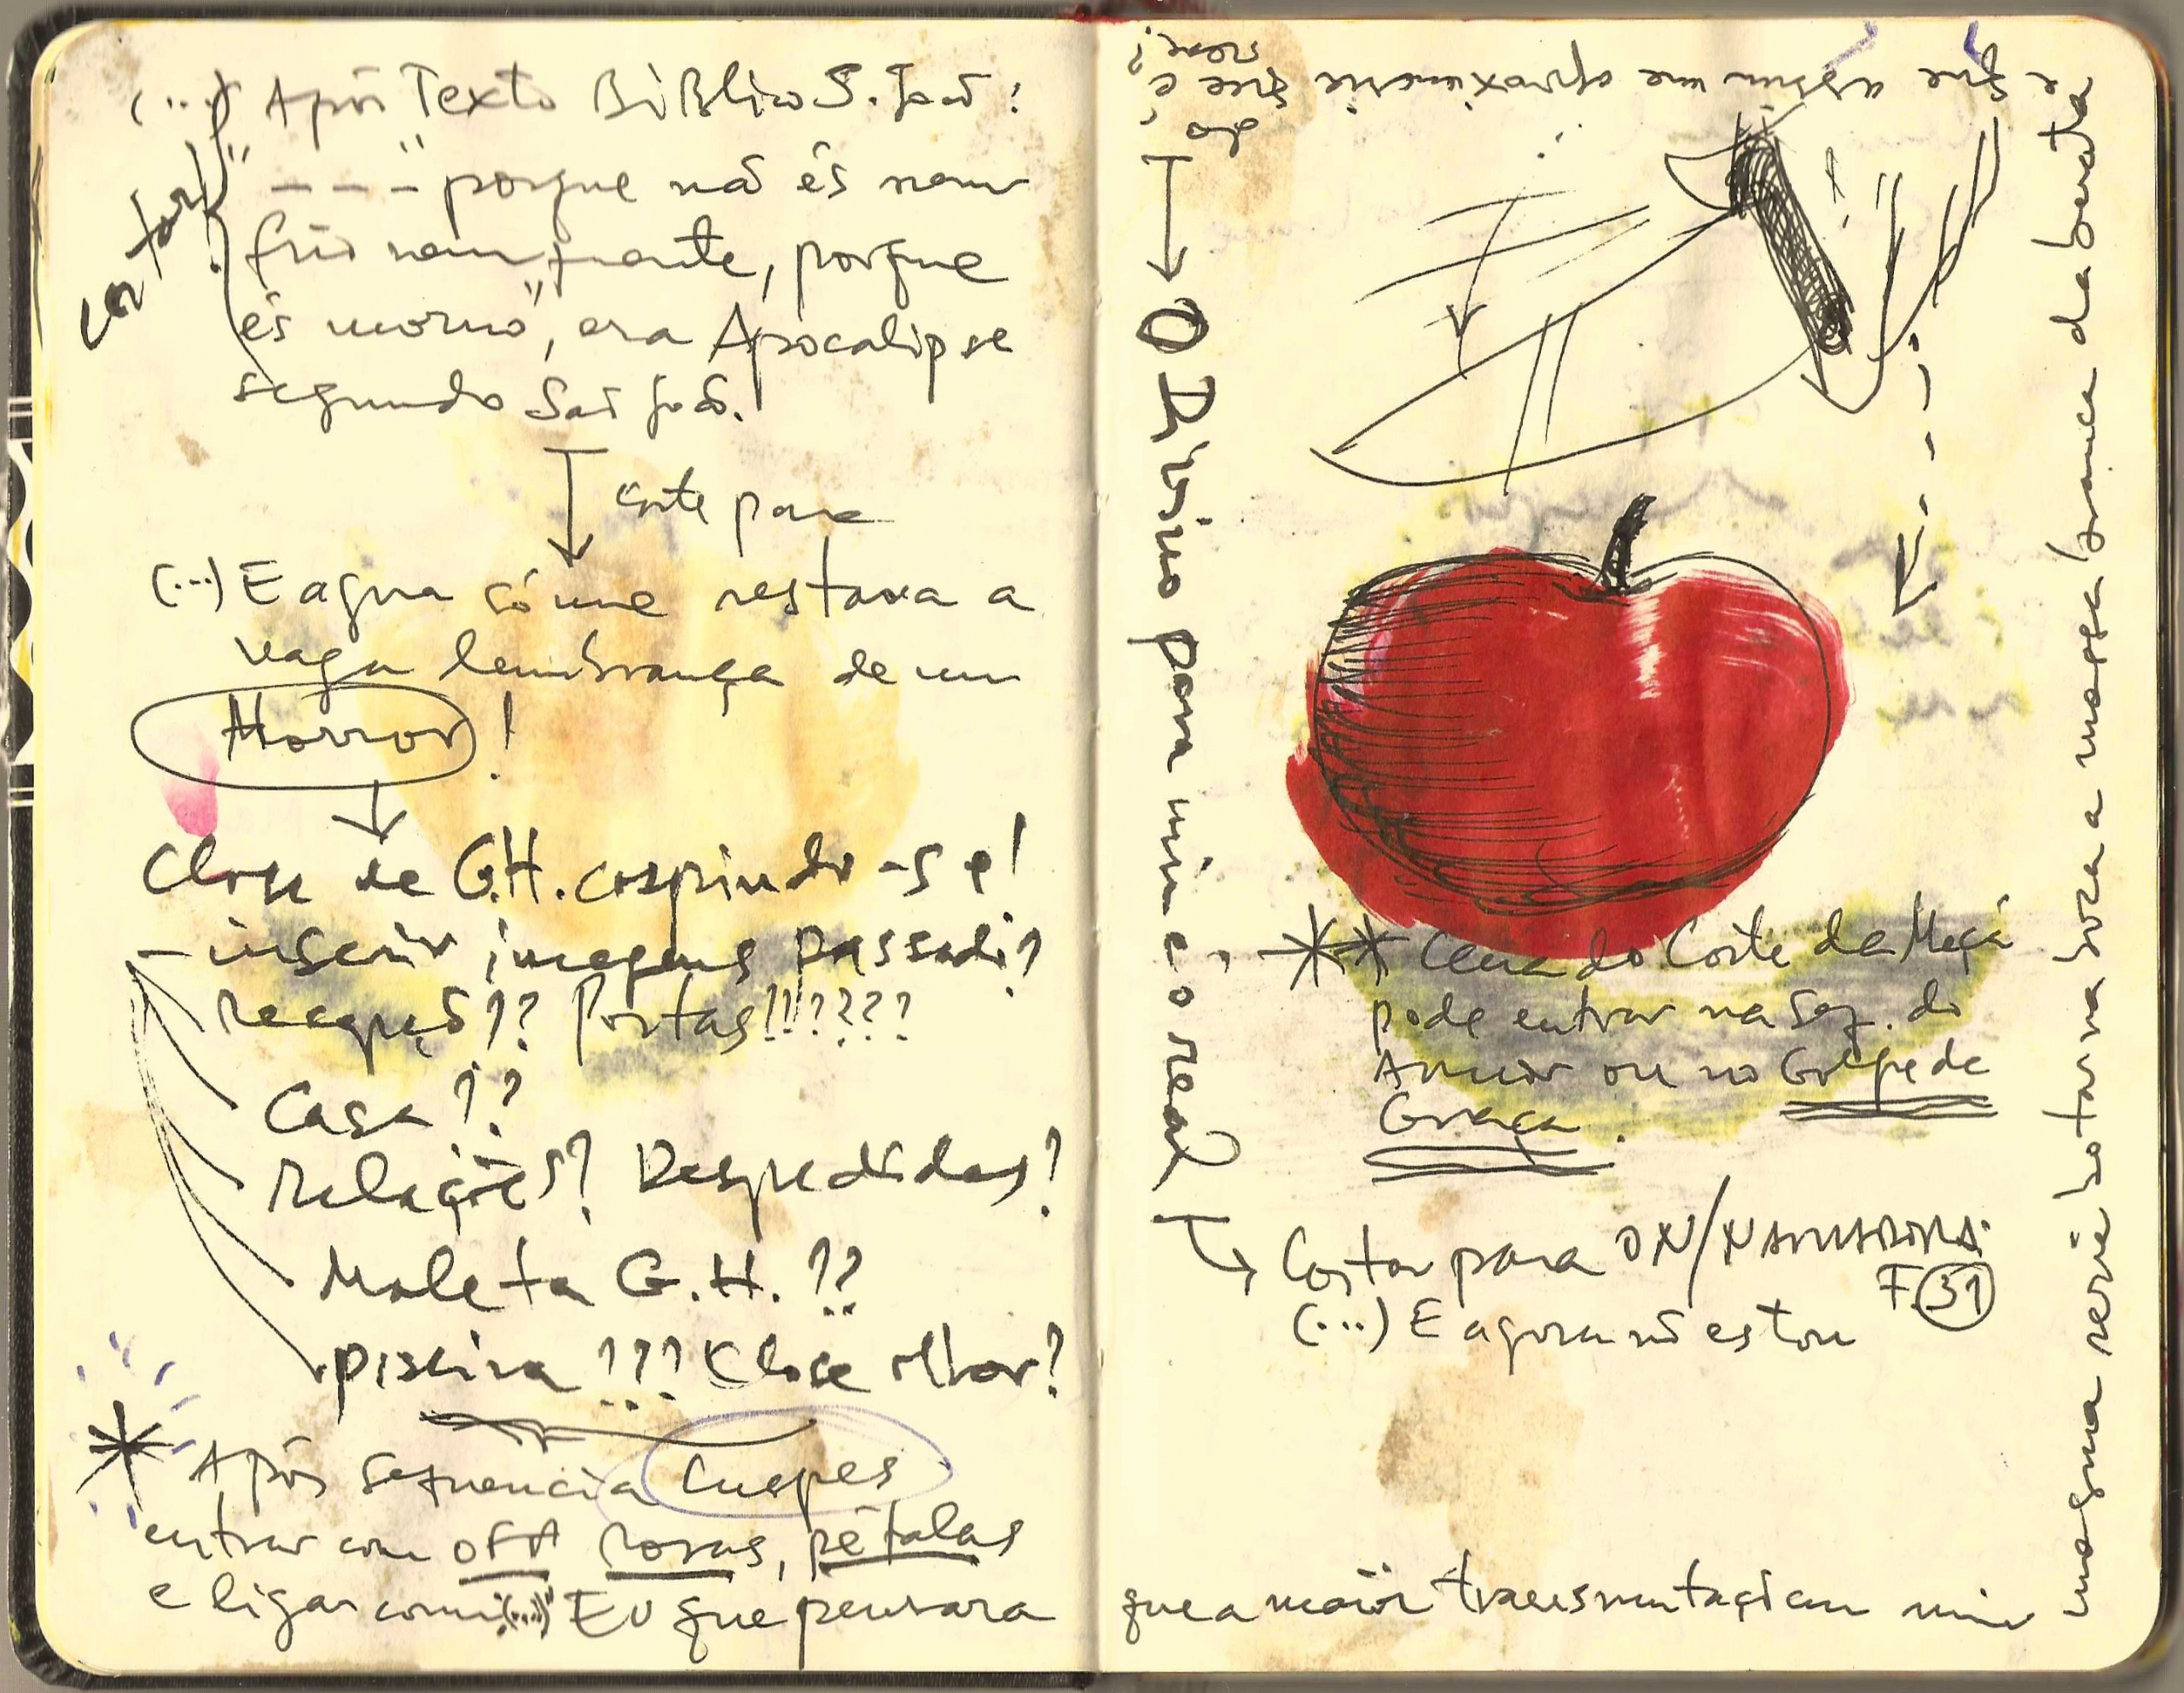 (...) Após Texto Bíblico S. João:
cortar
"- - - porque não és nem
frio nem quente, porque
és morno", era Apocalipse
segundo São João.
corte para
(...) E agora só me restava a
vaga lembrança de um
Horror!
Close de G.H. cospindo-se!
- inserir imagens passadi?
Recepção?? Portas!!????
Casa??
Relações? Despedidas?
Maleta G.H.??
piscina??? Close olhar?
* Após Sequencia Cuspes
entrar com OFF Rosas, pétalas
e ligar com (...) Eu que pensara
que a maior transmutação em mim
mesma seria botar na boca a massa branca da barata
e que assim me aproximaria
do que é
O Divino para mim é o real
** Cena do Corte da Maçã
pode entrar na Seq. do
Amor ou no Golpe de
Graça.
Cortar para ON/NARRADORA
F. 31
(...) E agora não estou